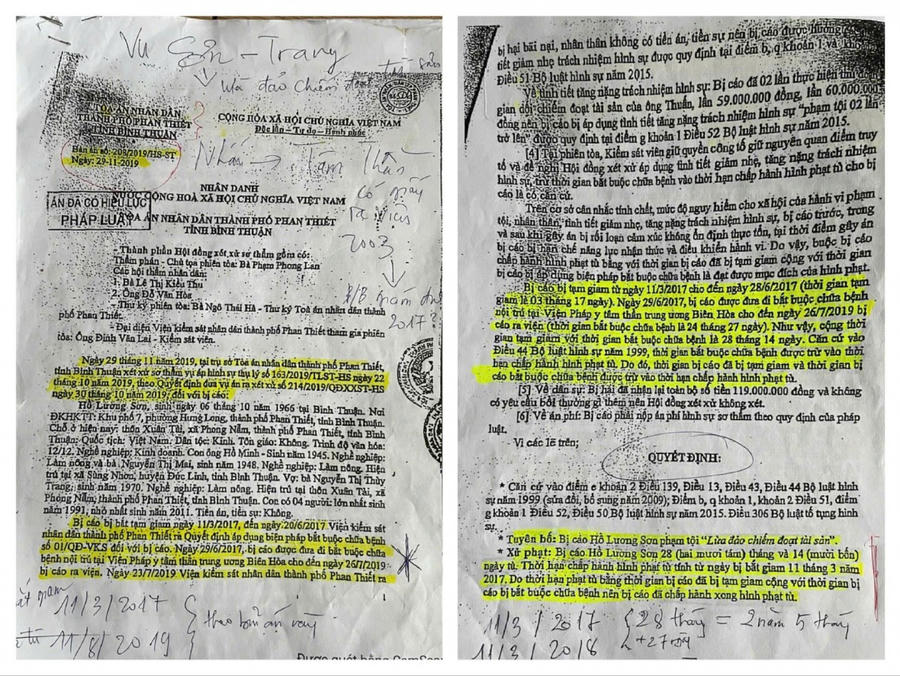 Vụ Sơn - Trang
lừa đảo chiếm
TÒA ÁN NHÂN DÂN
THÀNH PHỐ PHAN THIẾT
TỈNH BÌNH THUẬN
Bản án số: 208/2019/HS-ST
Ngày: 29-11-2019
CỘNG HÒA XÃ HỘI CHỦ NGHĨA VIỆT NAM
Độc lập - Tự do - Hạnh phúc
Nhân → Tâm Thần
NHÂN DANH
NƯỚC CỘNG HÒA XÃ HỘI CHỦ NGHĨA VIỆT NAM
TÒA ÁN NHÂN DÂN THÀNH PHỐ PHAN THIẾT
TỈNH BÌNH THUẬN
ÁN ĐÃ CÓ HIỆU LỰC
PHÁP LUẬT
2003
2017?
- Thành phần Hội đồng xét xử sơ thẩm gồm có:
Thẩm phán - Chủ tọa phiên tòa: Bà Phạm Phong Lan
Các hội thẩm nhân dân:
1. Bà Lê Thị Kiều Thu
2. Ông Đỗ Văn Hòa
- Thư ký phiên tòa: Bà Ngô Thái Hà - Thư ký Toà án nhân dân thành
phố Phan Thiết.
- Đại diện Viện kiểm sát nhân dân thành phố Phan Thiết tham gia phiên
tòa: Ông Đinh Văn Lai - Kiểm sát viên.
Ngày 29 tháng 11 năm 2019, tại trụ sở Tòa án nhân dân thành phố Phan Thiết,
tỉnh Bình Thuận xét xử sơ thẩm vụ án hình sự thụ lý số 163/2019/TLST-HS ngày 22
tháng 10 năm 2019, theo Quyết định đưa vụ án ra xét xử số 214/2019/QĐXXST-HS
ngày 30 tháng 10 năm 2019, đối với bị cáo:
Hồ Lương Sơn, sinh ngày 06 tháng 10 năm 1966 tại Bình Thuận. Nơi
ĐKHKTT: Khu phố 7, phường Hưng Long, thành phố Phan Thiết, tỉnh Bình Thuận.
Chỗ ở hiện nay: thôn Xuân Tài, xã Phong Nẫm, thành phố Phan Thiết, tỉnh Bình
Thuận; Quốc tịch: Việt Nam. Dân tộc: Kinh. Tôn giáo: Không. Trình độ văn hóa:
12/12. Nghề nghiệp: Kinh doanh. Con ông Hồ Minh - Sinh năm 1945. Nghề nghiệp:
Làm nông và bà Nguyễn Thị Mai, sinh năm 1948. Nghề nghiệp: Làm nông. Hiện
trú tại xã Sùng Nhơn, huyện Đức Linh, tỉnh Bình Thuận. Vợ: bà Nguyễn Thị Thùy
Trang, sinh năm 1970. Nghề nghiệp: Làm nông. Hiện trú tại thôn Xuân Tài, xã
Phong Nẫm, thành phố Phan Thiết, tỉnh Bình Thuận. Con có 04 người: lớn nhất sinh
năm 1991, nhỏ nhất sinh năm 2011. Tiền án, tiền sự: Không.
Bị cáo bị bắt tạm giam ngày 11/3/2017, đến ngày 20/6/2017 Viện kiểm sát
nhân dân thành phố Phan Thiết ra Quyết định áp dụng biện pháp bắt buộc chữa bệnh
số 01/QĐ-VKS đối với bị cáo. Ngày 29/6/2017, bị cáo được đưa đi bắt buộc chữa
bệnh nội trú tại Viện Pháp y tâm thần trung ương Biên Hòa cho đến ngày 26/7/2019
bị cáo ra viện. Ngày 23/7/2019 Viện kiểm sát nhân dân thành phố Phan Thiết ra
11/3/2017
11/8/2019
theo bản án này
bị hại bãi nại, nhân thân không có tiền án, tiền sự nên bị cáo được hưởng
tiết giảm nhẹ trách nhiệm hình sự được quy định tại điểm b, q khoản 1 và kho
Điều 51 Bộ luật hình sự năm 2015.
Về tình tiết tăng nặng trách nhiệm hình sự: Bị cáo đã 02 lần thực hiện thủ đo
gian dối chiếm đoạt tài sản của ông Thuần, lần 59.000.000 đồng, lần 60.000.000
đồng nên bị cáo bị áp dụng tình tiết tăng nặng trách nhiệm hình sự "phạm tội 02 lần
trở lên" được quy định tại điểm g khoản 1 Điều 52 Bộ luật hình sự năm 2015.
[4] Tại phiên tòa, Kiểm sát viên giữ quyền công tố giữ nguyên quan điểm truy
tố và đề nghị Hội đồng xét xử áp dụng tình tiết giảm nhẹ, tăng nặng trách nhiệm
hình sự, trừ thời gian bắt buộc chữa bệnh vào thời hạn chấp hành hình phạt tù cho bị
cáo là có căn cứ.
Trên cơ sở cân nhắc tính chất, mức độ nguy hiểm cho xã hội của hành vi phạm
tội, nhân thân, tình tiết giảm nhẹ, tăng nặng trách nhiệm hình sự, bị cáo trước, trong
và sau khi gây án bị rối loạn cảm xúc không ổn định thực tổn, tại thời điểm gây án
bị cáo bị hạn chế năng lực nhận thức và điều khiển hành vi. Do vậy, buộc bị cáo
chấp hành hình phạt tù bằng với thời gian bị cáo đã bị tạm giam cộng với thời gian
bị cáo bị áp dụng biện pháp bắt buộc chữa bệnh là đạt được mục đích của hình phạt.
Bị cáo bị tạm giam từ ngày 11/3/2017 cho đến ngày 28/6/2017 (thời gian tạm
giam là 03 tháng 17 ngày). Ngày 29/6/2017, bị cáo được đưa đi bắt buộc chữa bệnh
nội trú tại Viện Pháp y tâm thần trung ương Biên Hòa cho đến ngày 26/7/2019 bị
cáo ra viện (thời gian bắt buộc chữa bệnh là 24 tháng 27 ngày). Như vậy, cộng thời
gian tạm giam với thời gian bắt buộc chữa bệnh là 28 tháng 14 ngày. Căn cứ vào
Điều 44 Bộ luật hình sự năm 1999, thời gian bắt buộc chữa bệnh được trừ vào thời
hạn chấp hành hình phạt tù. Do đó, thời gian bị cáo đã bị tạm giam và thời gian bị
cáo bắt buộc chữa bệnh được trừ vào thời hạn chấp hành hình phạt tù.
[5] Về dân sự: Bị hại đã nhận lại toàn bộ số tiền 119.000.000 đồng và không
có yêu cầu bồi thường gì thêm nên Hội đồng xét xử không xét.
[6] Về án phí: Bị cáo phải nộp án phí hình sự sơ thẩm theo quy định của pháp
luật.
Vì các lẽ trên;
QUYẾT ĐỊNH:
* Căn cứ vào điểm e khoản 2 Điều 139, Điều 13, Điều 43, Điều 44 Bộ luật hình
sự năm 1999 (sửa đổi, bổ sung năm 2009); Điểm b, q khoản 1, khoản 2 Điều 51, điểm
g khoản 1 Điều 52, Điều 50 Bộ luật hình sự năm 2015. Điều 306 Bộ luật tố tụng hình
sự.
* Tuyên bố: Bị cáo Hồ Lương Sơn phạm tội "Lừa đảo chiếm đoạt tài sản".
* Xử phạt: Bị cáo Hồ Lương Sơn 28 (hai mươi tám) tháng và 14 (mười bốn)
ngày tù. Thời hạn chấp hành hình phạt tù tính từ ngày bị bắt giam 11 tháng 3 năm
2017. Do thời hạn phạt tù bằng thời gian bị cáo đã bị tạm giam cộng với thời gian bị
cáo bị bắt buộc chữa bệnh nên bị cáo đã chấp hành xong hình phạt tù.
11/3/2017
11/3/2018
28 tháng = 2 năm 5 tháng
+27 ngày